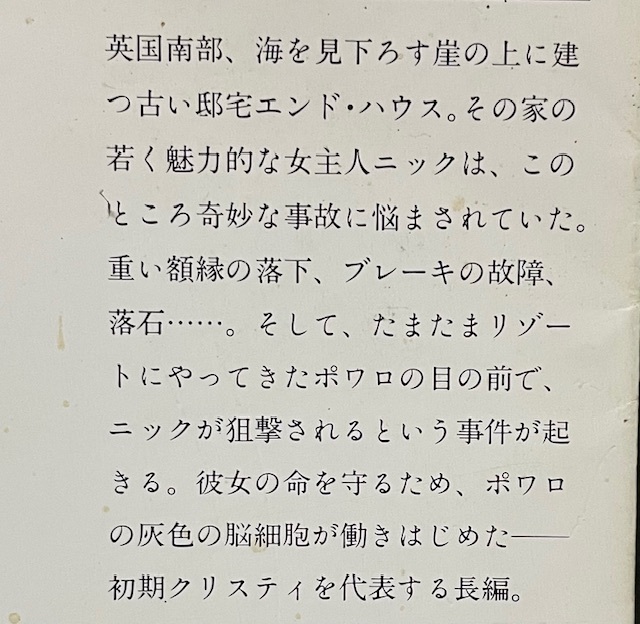 英国南部、海を見下ろす崖の上に建
つ古い邸宅エンド・ハウス。その家の
若く魅力的な女主人ニックは、この
ところ奇妙な事故に悩まされていた。
重い額縁の落下、ブレーキの故障、
落石……。そして、たまたまリゾー
トにやってきたポワロの目の前で、
ニックが狙撃されるという事件が起
きる。彼女の命を守るため、ポワロ
の灰色の脳細胞が働きはじめた──
初期クリスティを代表する長編。